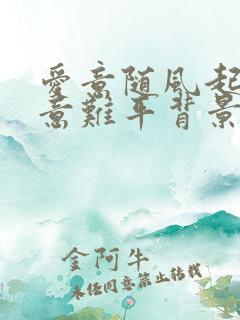 愛意随風起
意難平背景
金阿牛
未经同意禁止转载